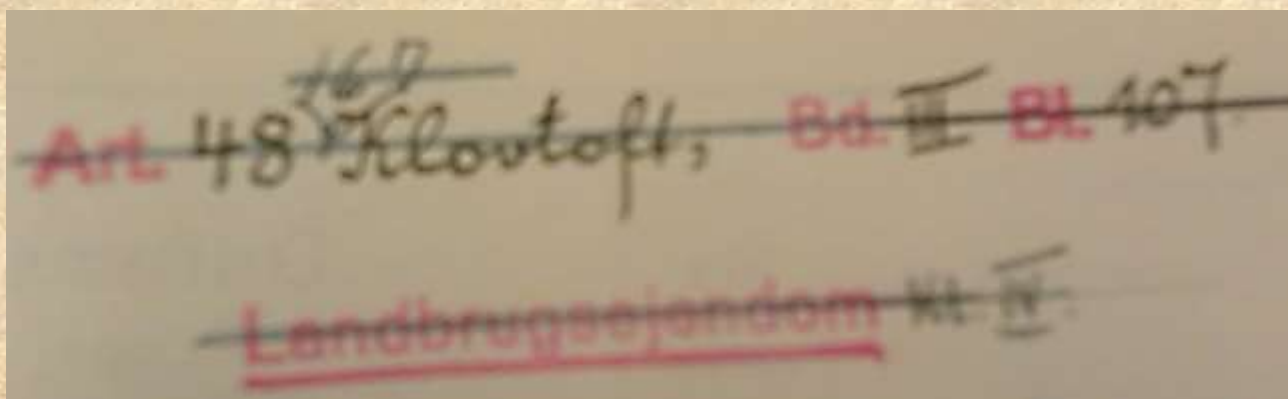 167
Art. 48 Klovtoft, Bd. III Bl. 107.
Landbrugsejendom Kl. IV.